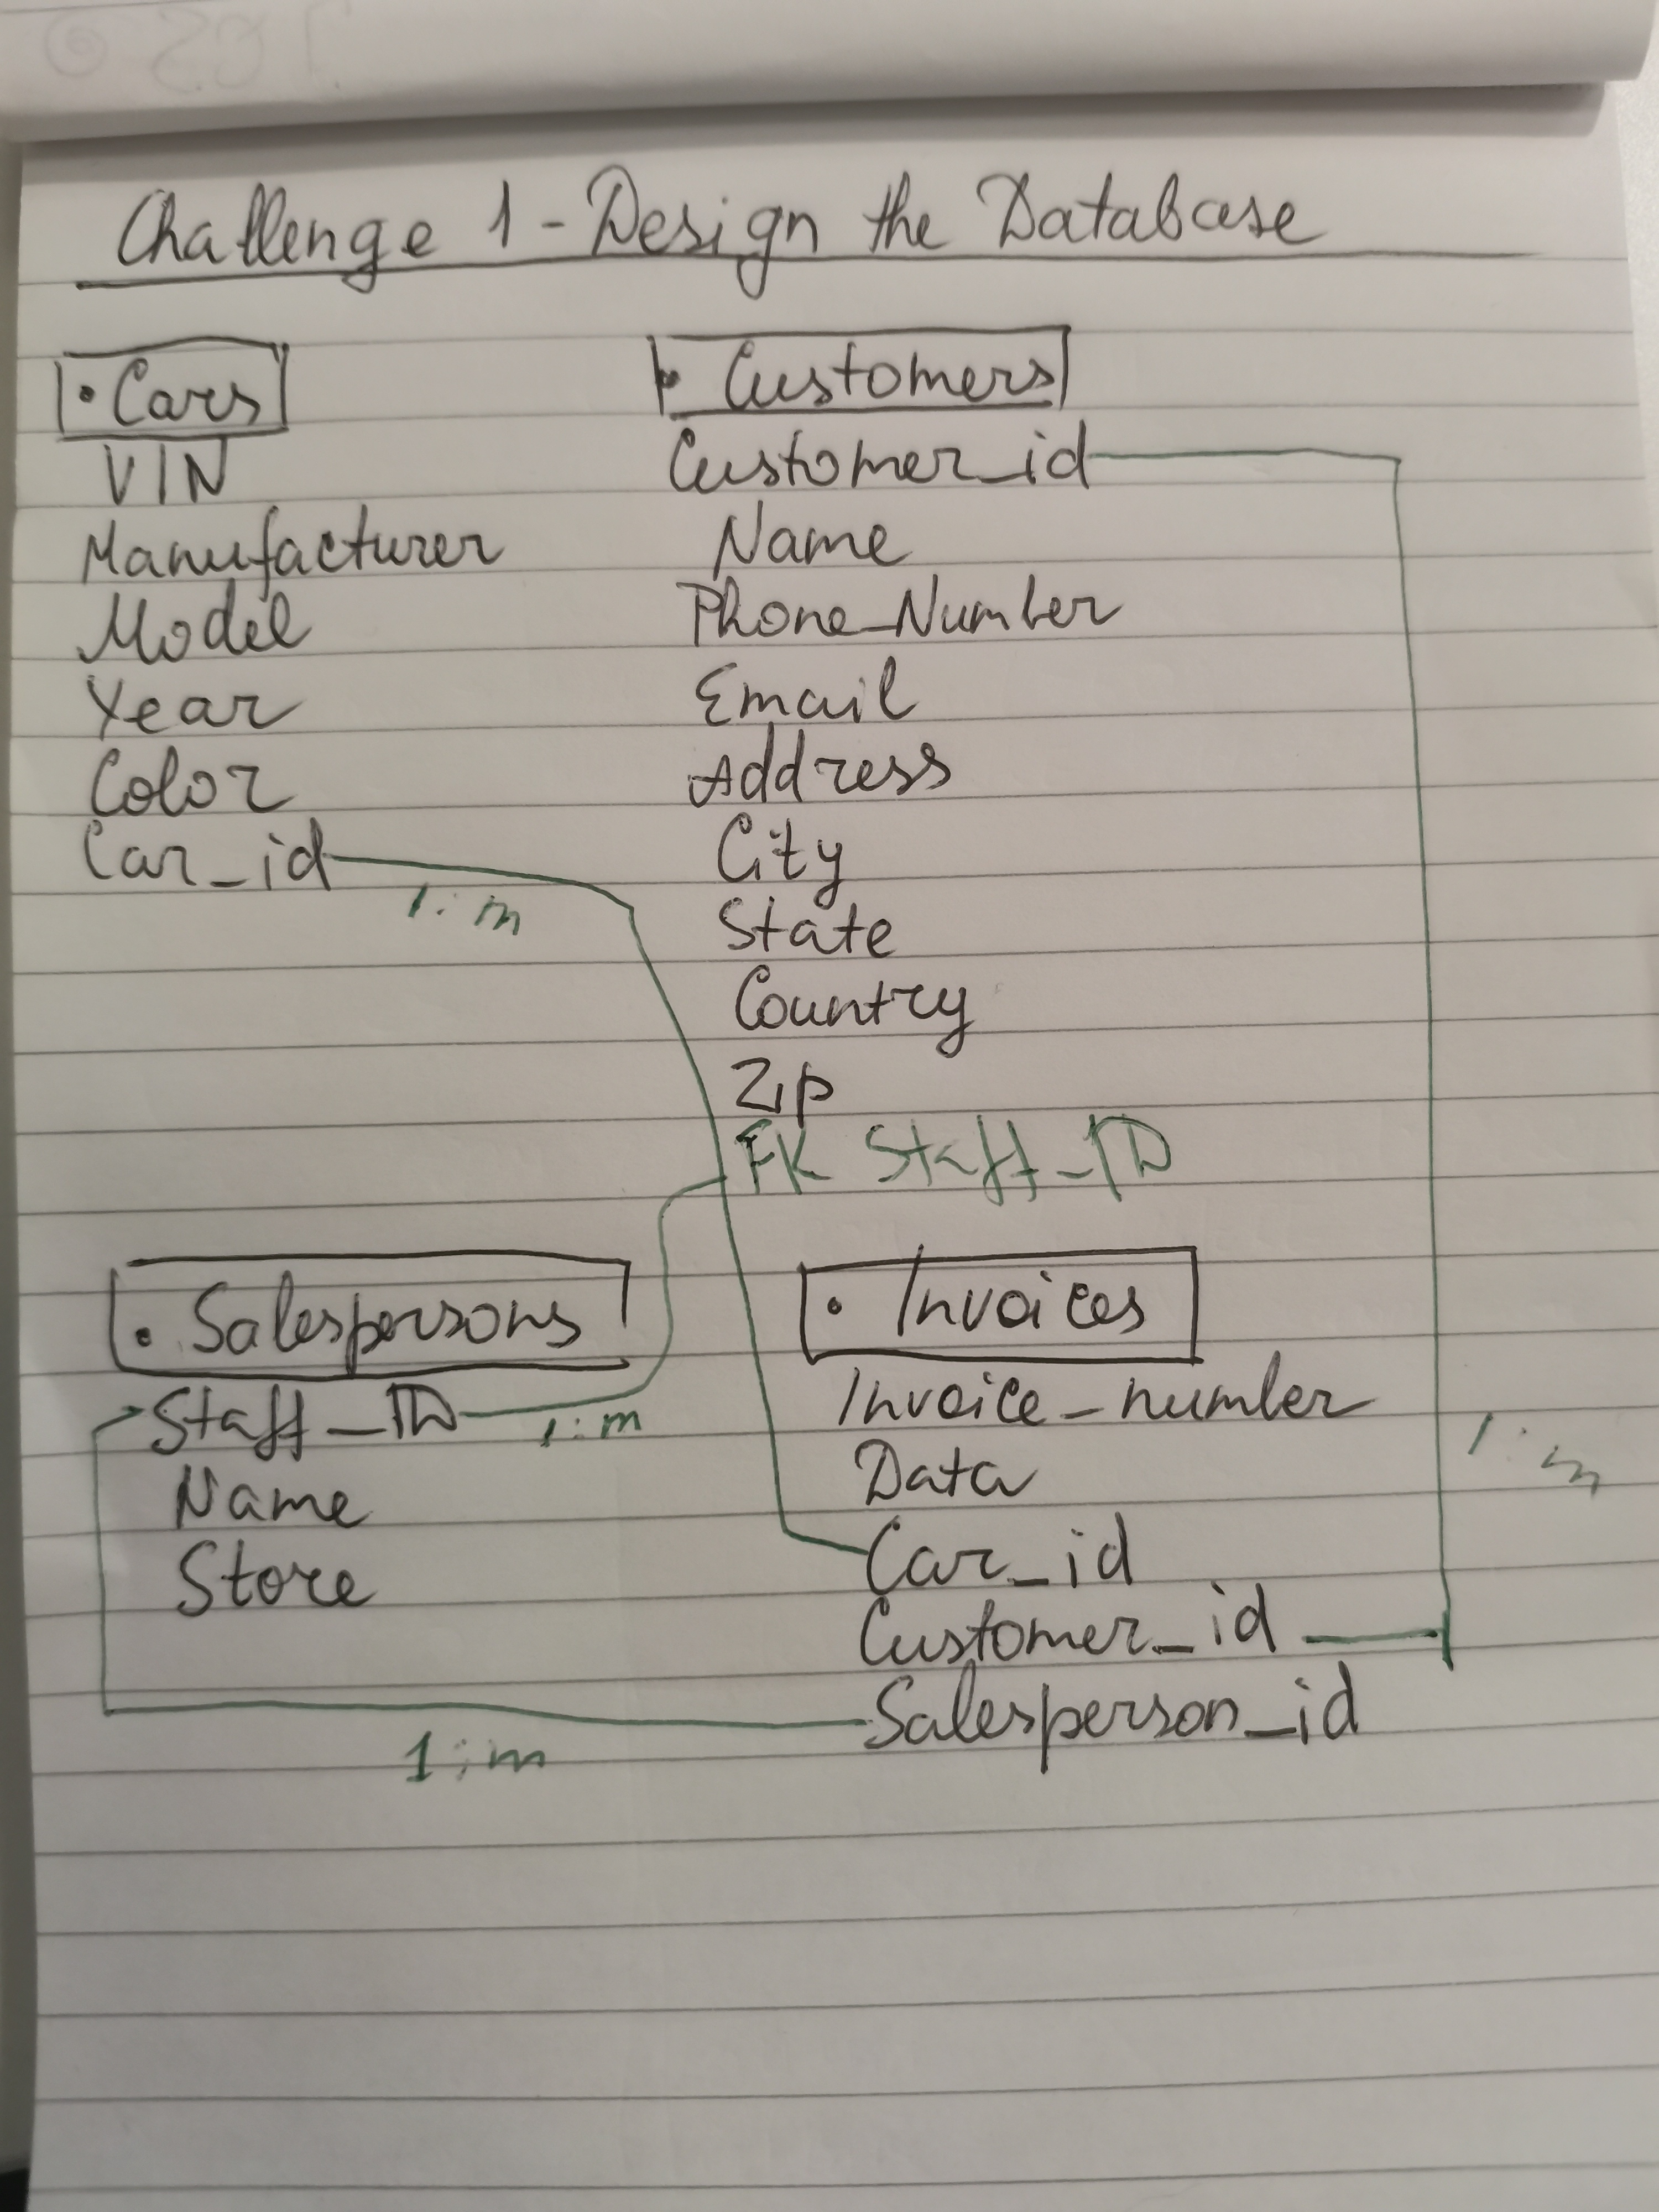 Challenge 1 - Design the Database
• Cars
VIN
Manufacturer
Model
Year
Color
Car_id
1:m
• Customers
Customer_id
Name
Phone_Number
Email
Address
City
State
Country
Zip
FK Staff_ID
• Salespersons
Staff_ID
1:m
Name
Store
• Invoices
Invoice_number
Data
Car_id
Customer_id
Salesperson_id
1:m
1:m